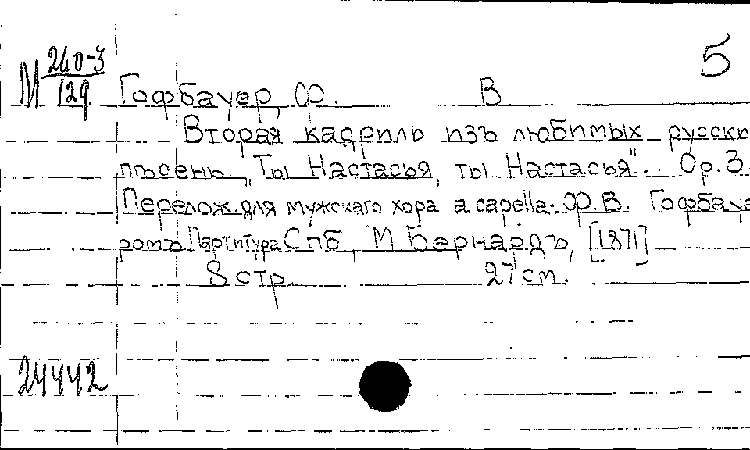 5
М 240-3
129
Гофбауер, Ф. В
Вторая кадриль изъ любимых русски
пѣсень „Ты Настасья, ты Настасья". Ор. 3.
Перелож. для мужскаго хора a capella. Ф. В. Гофбауе
ромъ Партитура Спб, М Бернардъ, [1871]
8 стр 27 см.
24442